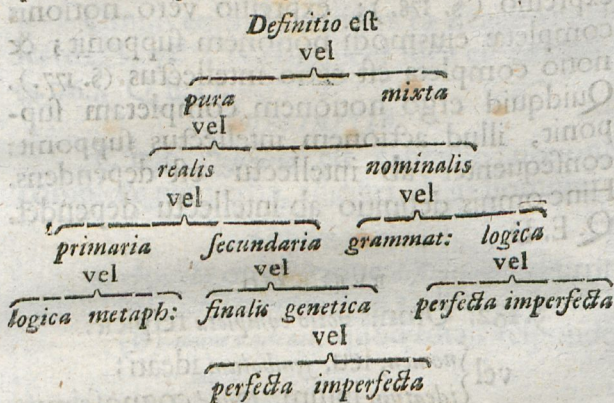 Definitio est
vel
pura mixta
vel
realis nominalis
vel vel
primaria secundaria grammat: logica
vel vel vel
logica metaph: finalis genetica perfecta imperfecta
vel
perfecta imperfecta